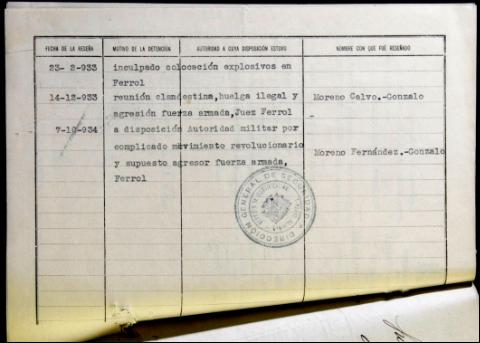 FECHA DE LA RESEÑA MOTIVO DE LA DETENCIÓN AUTORIDAD A CUYA DISPOSICIÓN ESTUVO NOMBRE CON QUE FUÉ RESEÑADO
23- 2-933 inculpado solocación explosivos en
Ferrol
14-12-933 reunión clandestina,huelga ilegal y Moreno Calvo.-Gonzalo
agresión fuerza armada,Juez Ferrol -
7-10-934 a disposición Autoridad militar por
complicado movimiento revolucionario
Moreno Fernández.-Gonzalo
y supuesto agresor fuerza armada,
Ferrol
DIRECCIÓN GENERAL DE SEGURIDAD